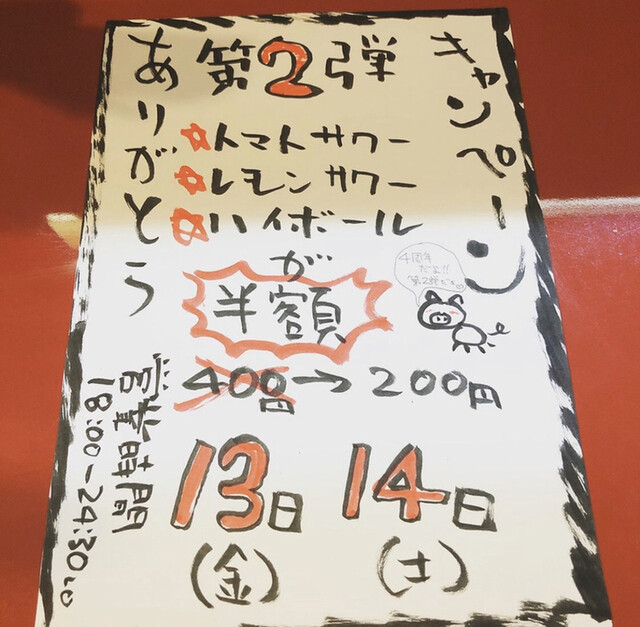 キャンペーン
第2弾
ありがとう
トマトサワー
レモンサワー
ハイボール
が
半額
4周年
だよ!!
第2弾だよ
400円→200円
13日
(金)
14日
(土)
営業時間
18:00-24:30